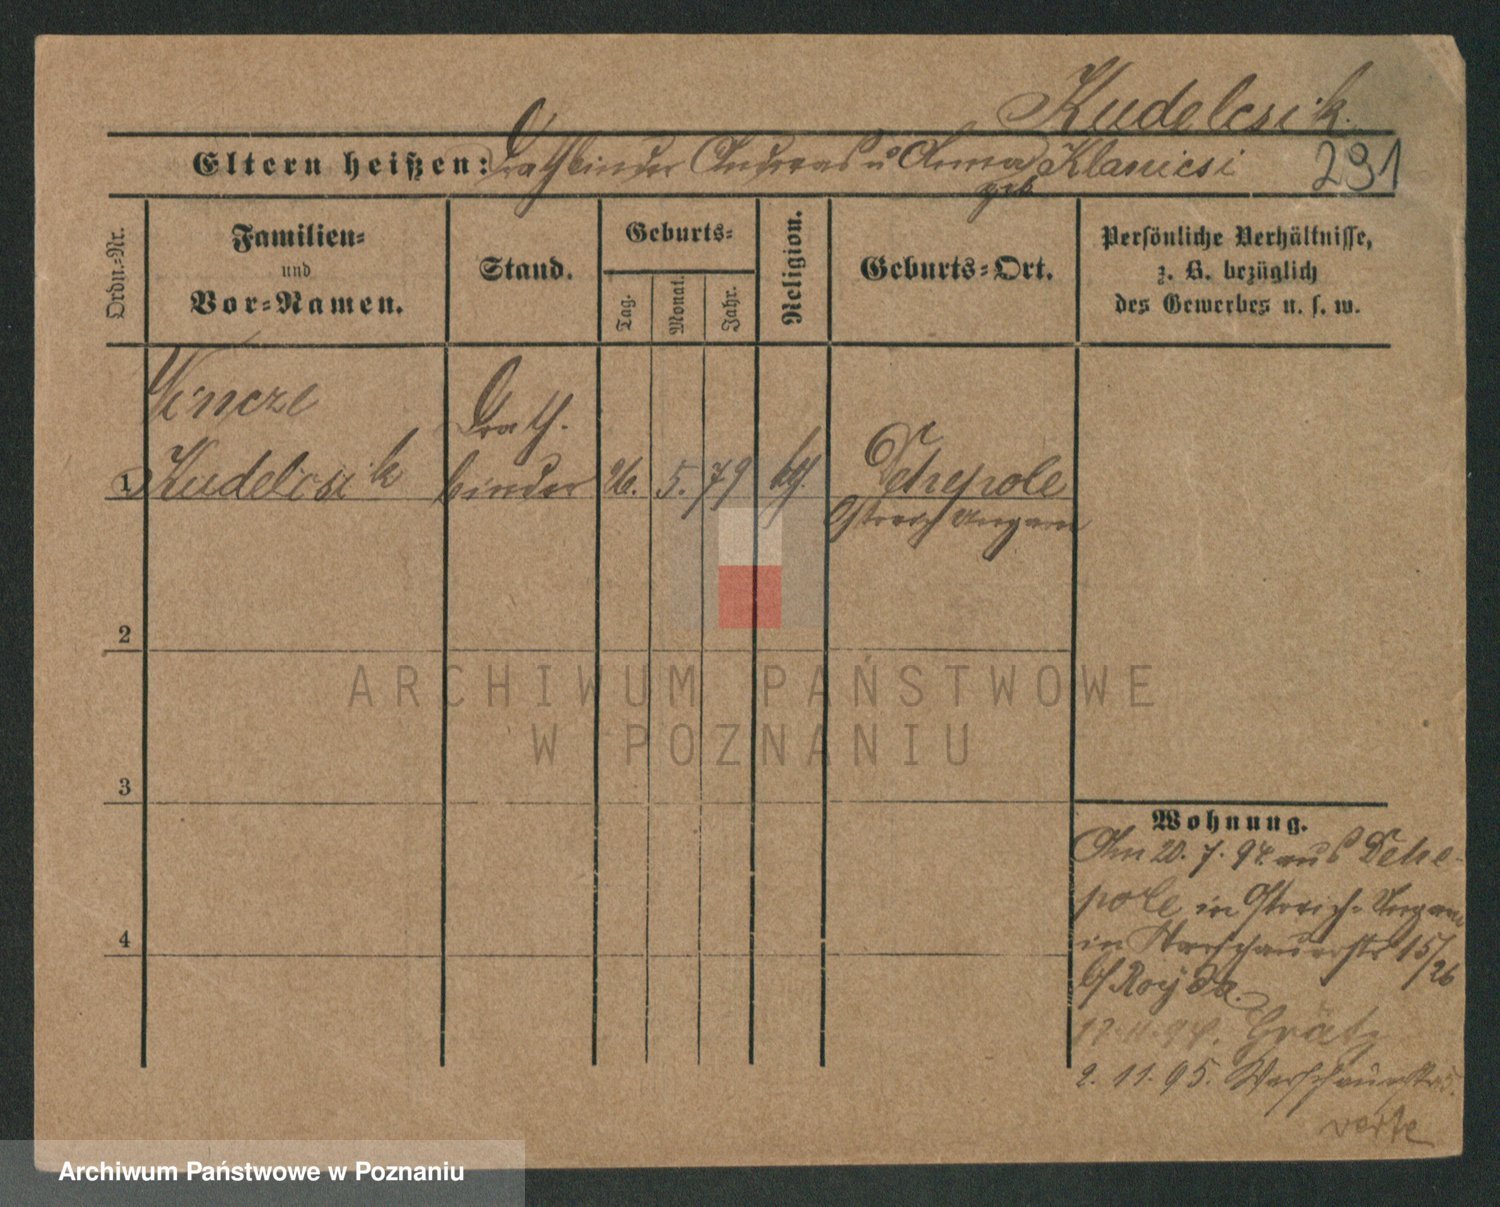 Kudelcsik.
Eltern heißen: Drathbinder Andreas u Anna geb Klanicsi
291
Ordn.-Nr.
Familien-
und
Vor-Namen.
Stand.
Geburts-
Tag.
Monat.
Jahr.
Religion.
Geburts-Ort.
Persönliche Verhältnisse,
z. B. bezüglich
des Gewerbes u. s. w.
Vincze
Drath.
1 Kudelcsik binder 26. 5. 79 kth.
Östreich Ungarn
2
3
4
Wohnung.
Am 20. 7. 94 aus
pole in Östreich-Ungarn
in Warschauerstr 15/26
b/
17. 11. 94. Grätz
2. 11. 95. Warschauerstr
verte
ARCHIWUM PAŃSTWOWE
W POZNANIU
Archiwum Państwowe w Poznaniu